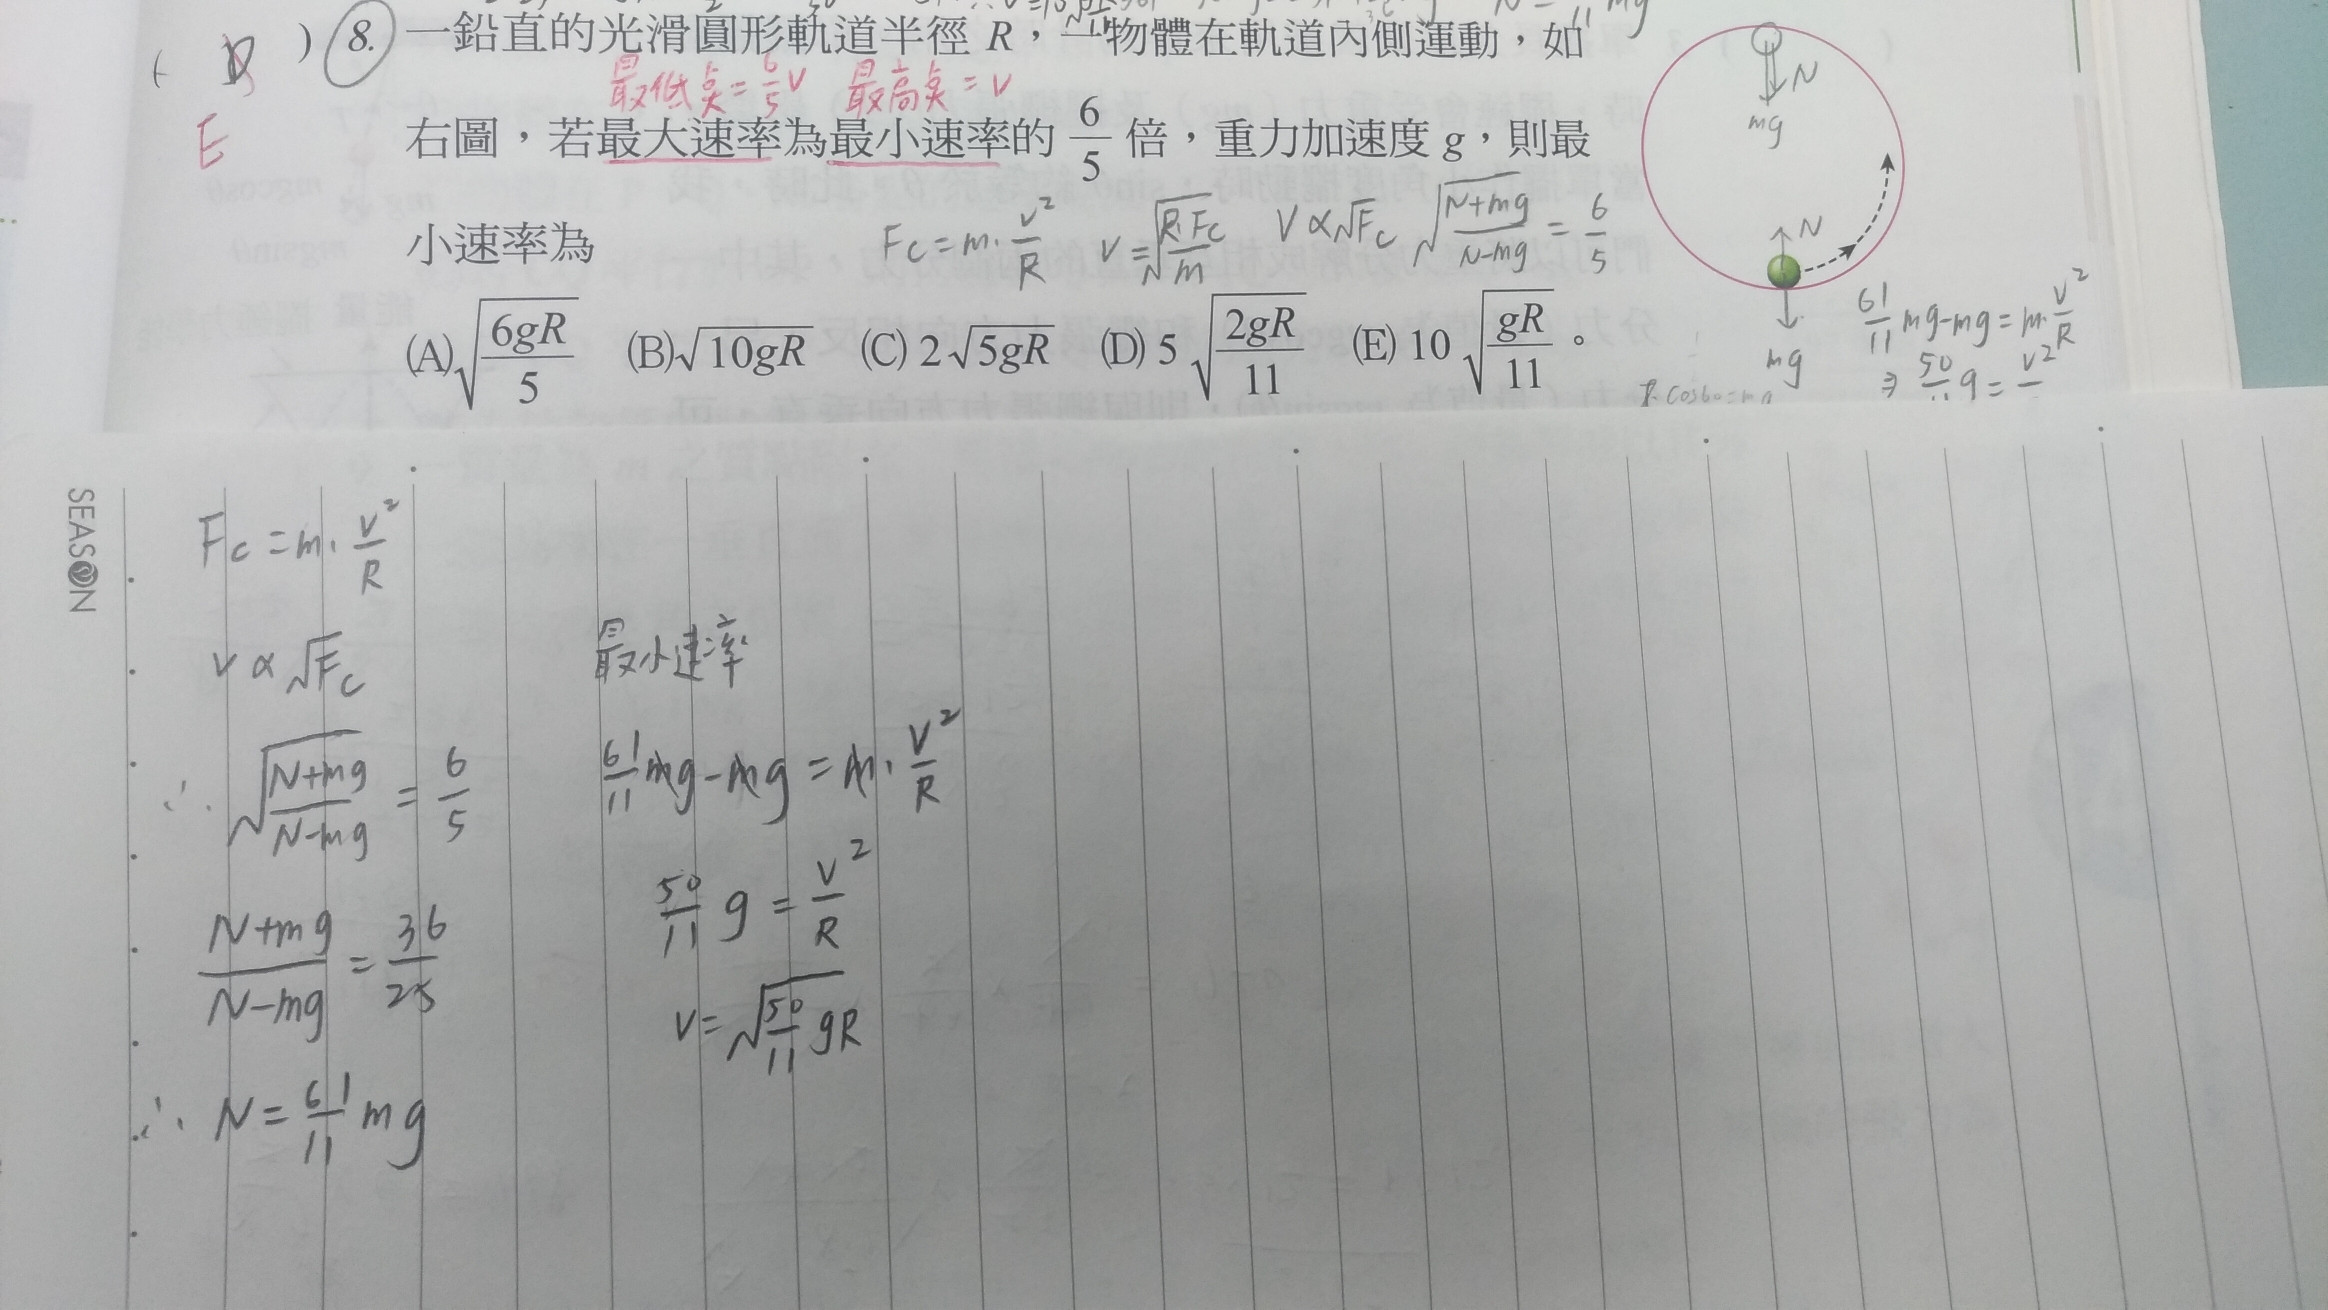 ( D ) 8. 一鉛直的光滑圓形軌道半徑 R，一物體在軌道內側運動，如
最低點 = 6/5 v 最高點 = v
E
右圖，若最大速率為最小速率的 6/5 倍，重力加速度 g，則最
小速率為
Fc = m · v²/R v = √(R·Fc/m) V ∝ √Fc √((N+mg)/(N-mg)) = 6/5
(A) √(6gR/5) (B) √(10gR) (C) 2√(5gR) (D) 5√(2gR/11) (E) 10√(gR/11)。
N
mg
N
mg
61/11 mg-mg = m · v²/R
⇒ 50/11 g = v²/
SEASON
Fc = m · v²/R
v ∝ √Fc
∴ √((N+mg)/(N-mg)) = 6/5
(N+mg)/(N-mg) = 36/25
∴ N = 61/11 mg
最小速率
61/11 mg - mg = m · v²/R
50/11 g = v²/R
v = √(50/11 gR)